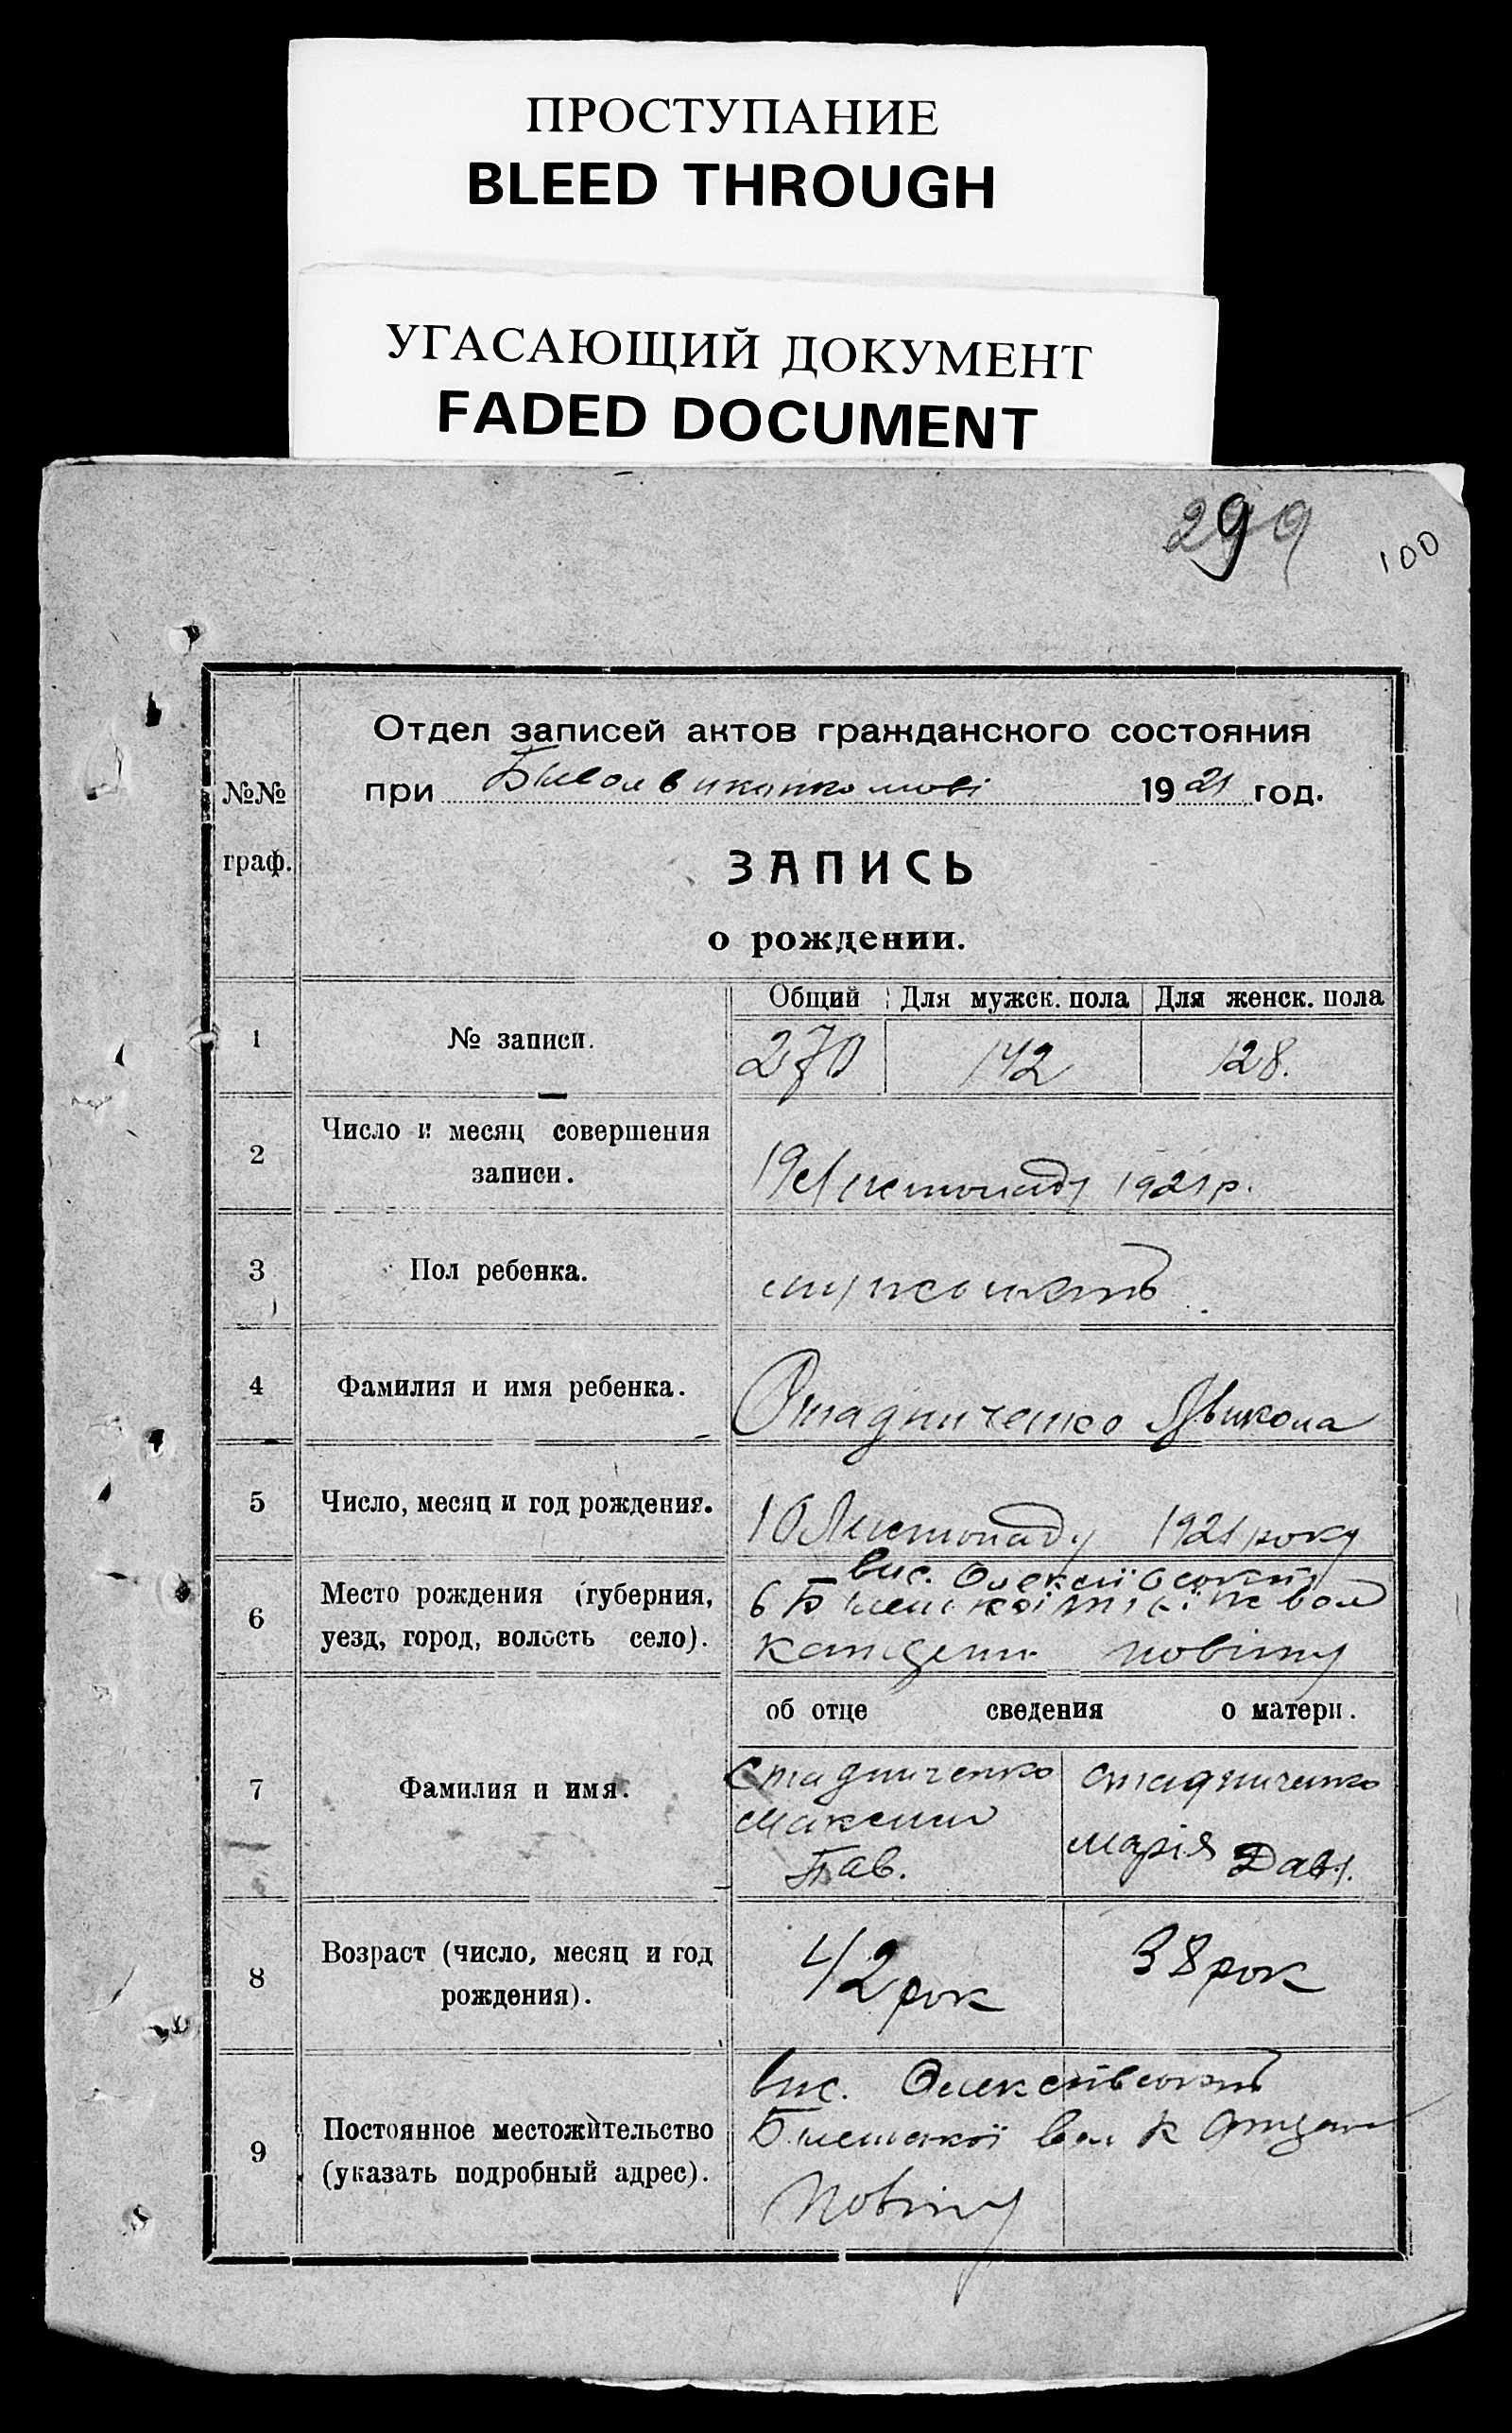 ПРОСТУПАНИЕ
BLEED THROUGH
УГАСАЮЩИЙ ДОКУМЕНТ
FADED DOCUMENT
299
100
№№
граф.
Отдел записей актов гражданского состояния
при 1921 год.
ЗАПИСЬ
о рождении.
Общий Для мужск. пола Для женск. пола
1 № записи. 270 142 128.
2 Число и месяц совершения
записи. 19 Листопаду 1921 р.
3 Пол ребенка.
4 Фамилия и имя ребенка. Стадниченко Микола
5 Число, месяц и год рождения. 10 Листопаду 1921 року
6 Место рождения (губерния,
уезд, город, волость село).
вис. Олексіївському
повіту
об отце сведения о матери.
7 Фамилия и имя. Стадниченко Стадниченко
Максим Марія Дав.
Пав.
8 Возраст (число, месяц и год
рождения). 42 рок 38 рок
9 Постоянное местожительство
(указать подробный адрес).
вис.
вол
повіту